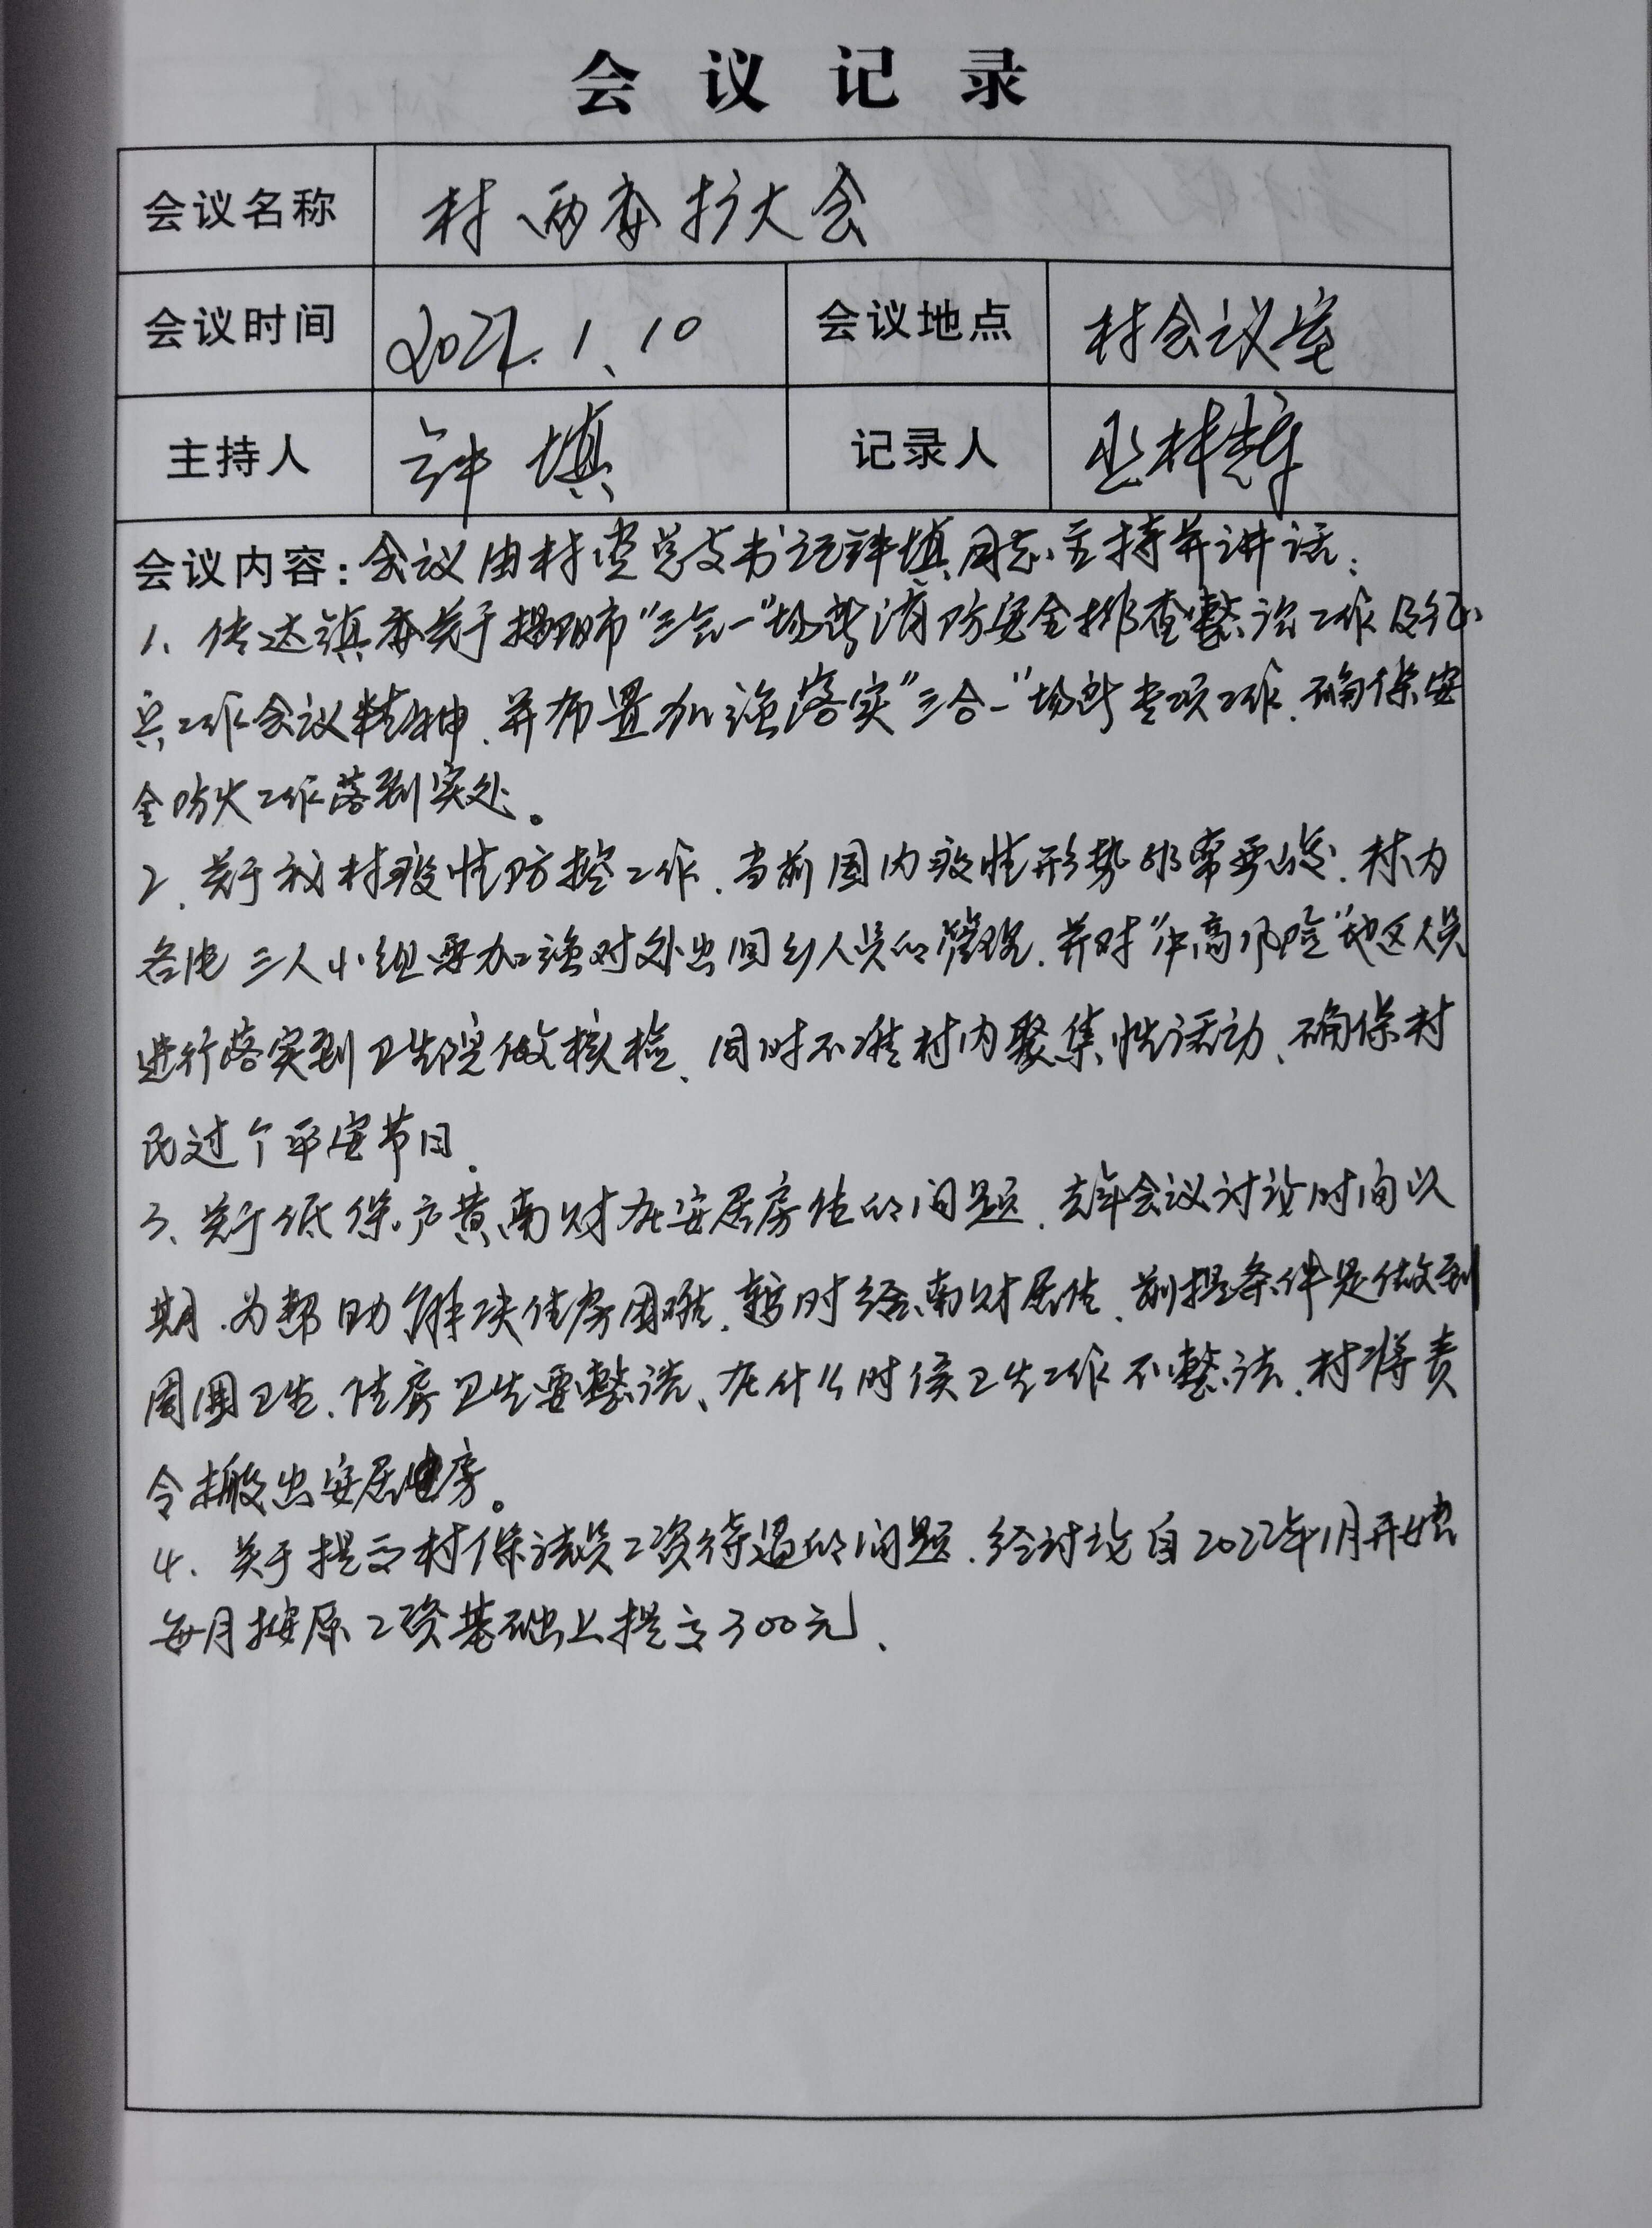 会议记录
会议名称 村两委扩大会
会议时间 2022.1.10 会议地点 村会议室
主持人 钟填 记录人
会议内容：会议由村党总支书记钟填同志主持并讲话：
1、传达镇委关于揭阳市“三合一”场所消防安全排查整治工作及征
兵工作会议精神、并布置加强落实“三合一”场所专项工作、确保安
全防火工作落到实处。
2、关于我村疫性防控工作、当前国内疫性形势非常严峻、村内
各池三人小组要加强对外出回乡人员的管理、并对“中高风险”地区人员
进行落实到卫生院做核检、同时不准村内聚集性活动、确保村
民过个平安节日、
3、关于低保户黄南财在安居房住的问题、去年会议讨论时间以
期、为帮助解决住房困难、暂时给南财居住、前提条件是做到
周围卫生、住房卫生要整洁、在什么时候卫生工作不整洁、村将责
令搬出安居房。
4、关于提高村保洁员工资待遇的问题、经讨论自2022年1月开始
每月按原工资基础上提高300元、